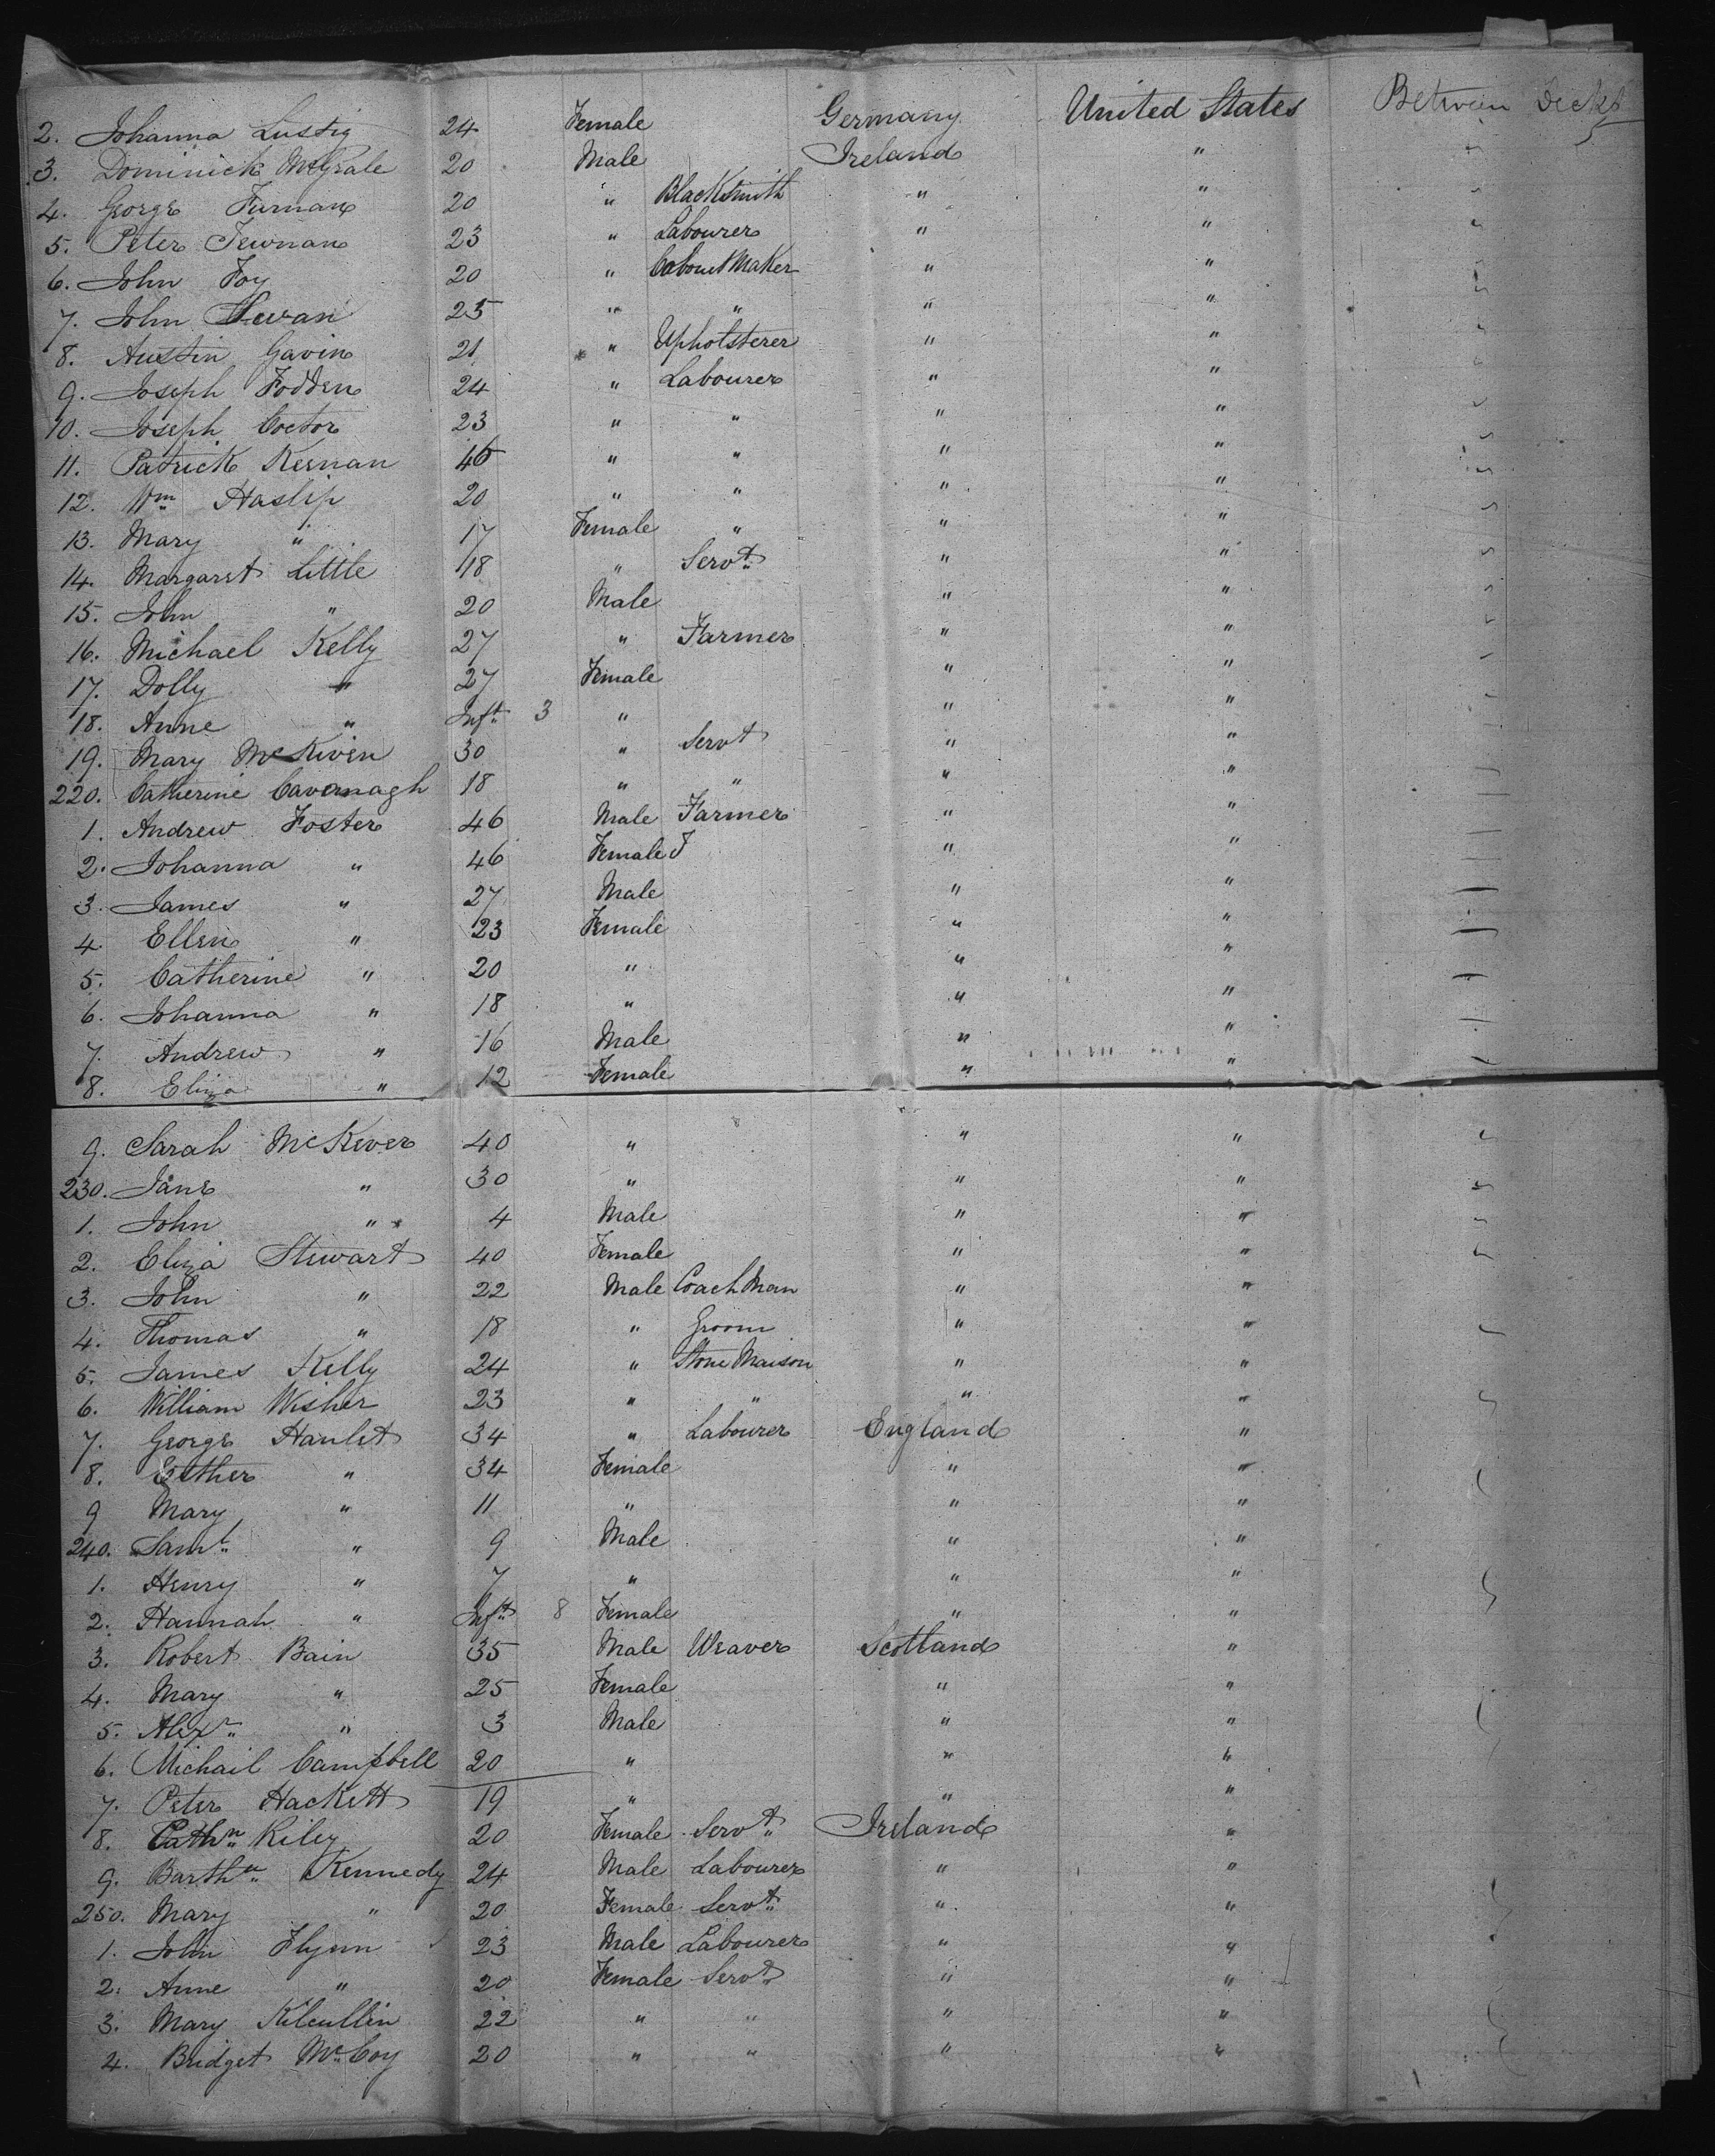 2. Johanna Lustig 24 Female Germany United States Between Decks
3. Dominick McGrale 20 Male Ireland "
4. George Furnan 20 " Blacksmith " "
5. Peter 23 " Labourer " "
6. John Foy 20 " Cabinet Maker " "
7. John 25 " " " "
8. Austin Gavin 21 " Upholsterer " "
9. Joseph Fodden 24 " Labourer " "
10. Joseph Coctor 23 " " " "
11. Patrick Kernan 46 " " " "
12. Wm Haslip 20 " " " "
13. Mary " 17 Female " " "
14. Margaret Little 18 " Servt " "
15. John " 20 Male " "
16. Michael Kelly 27 " Farmer " "
17. Dolly " 27 Female " "
18. Anne " Inft 3 " " "
19. Mary McKiven 30 " Servt " "
220. Catherine Cavanagh 18 " " " "
1. Andrew Foster 46 Male Farmer " "
2. Johanna " 46 Female F " "
3. James " 27 Male " "
4 Ellen " 23 Female " "
5. Catherine " 20 " " "
6. Johanna " 18 " " "
7. Andrew " 16 Male " "
8. Eliza " 12 Female " "
9. Sarah McKever 40 " " "
230. Jane " 30 " " "
1. John " 4 Male " "
2. Eliza Stewart 40 Female " "
3. John " 22 Male Coach Man " "
4. Thomas " 18 " Groom " "
5. James Kelly 24 " Stone Maison " "
6. William Wisher 23 " " " "
7. George Hanlet 34 " Labourer England "
8. Esther " 34 Female " "
9 Mary " 11 " " "
240. Saml " 9 Male " "
1. Henry " 7 " " "
2. Hannah " Inft 8 Female " "
3. Robert Bain 35 Male Weaver Scotland "
4. Mary " 25 Female " "
5. Alexr " 3 Male " "
6. Michail Campbell 20 " " "
7. Peter Hackett 19 " " "
8. Cathn Riley 20 Female Servt Ireland "
9. Barthw Kennedy 24 Male Labourer " "
250. Mary " 20 Female Servt " "
1. John Flynn 23 Male Labourer " "
2. Anne " 20 Female Servt " "
3. Mary Kilcullin 22 " " " "
4. Bridget McCoy 20 " " " "